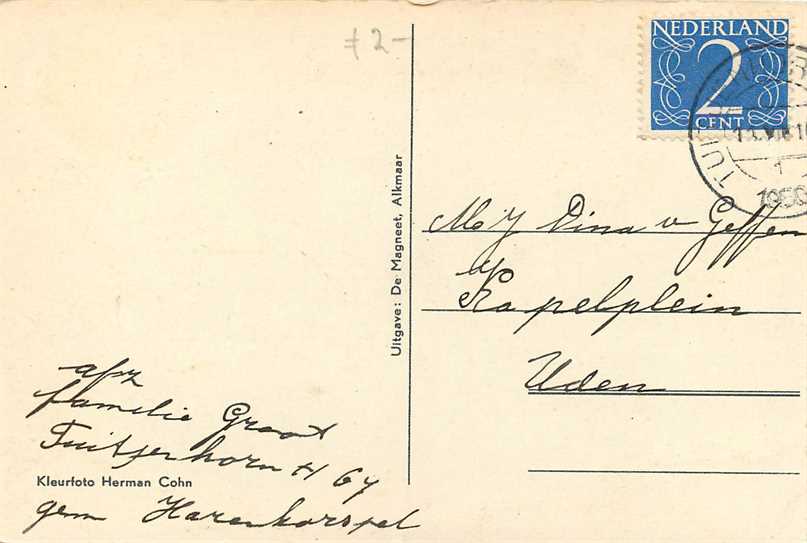 f 2-
NEDERLAND
2
CENT
TUI
1
1950
Uitgave: De Magneet, Alkmaar
Mej Dina v Geffen
Kapelplein
Uden
afz
familie Groot
Tuitjerhorn H 67
Kleurfoto Herman Cohn
gem Harenkarspel